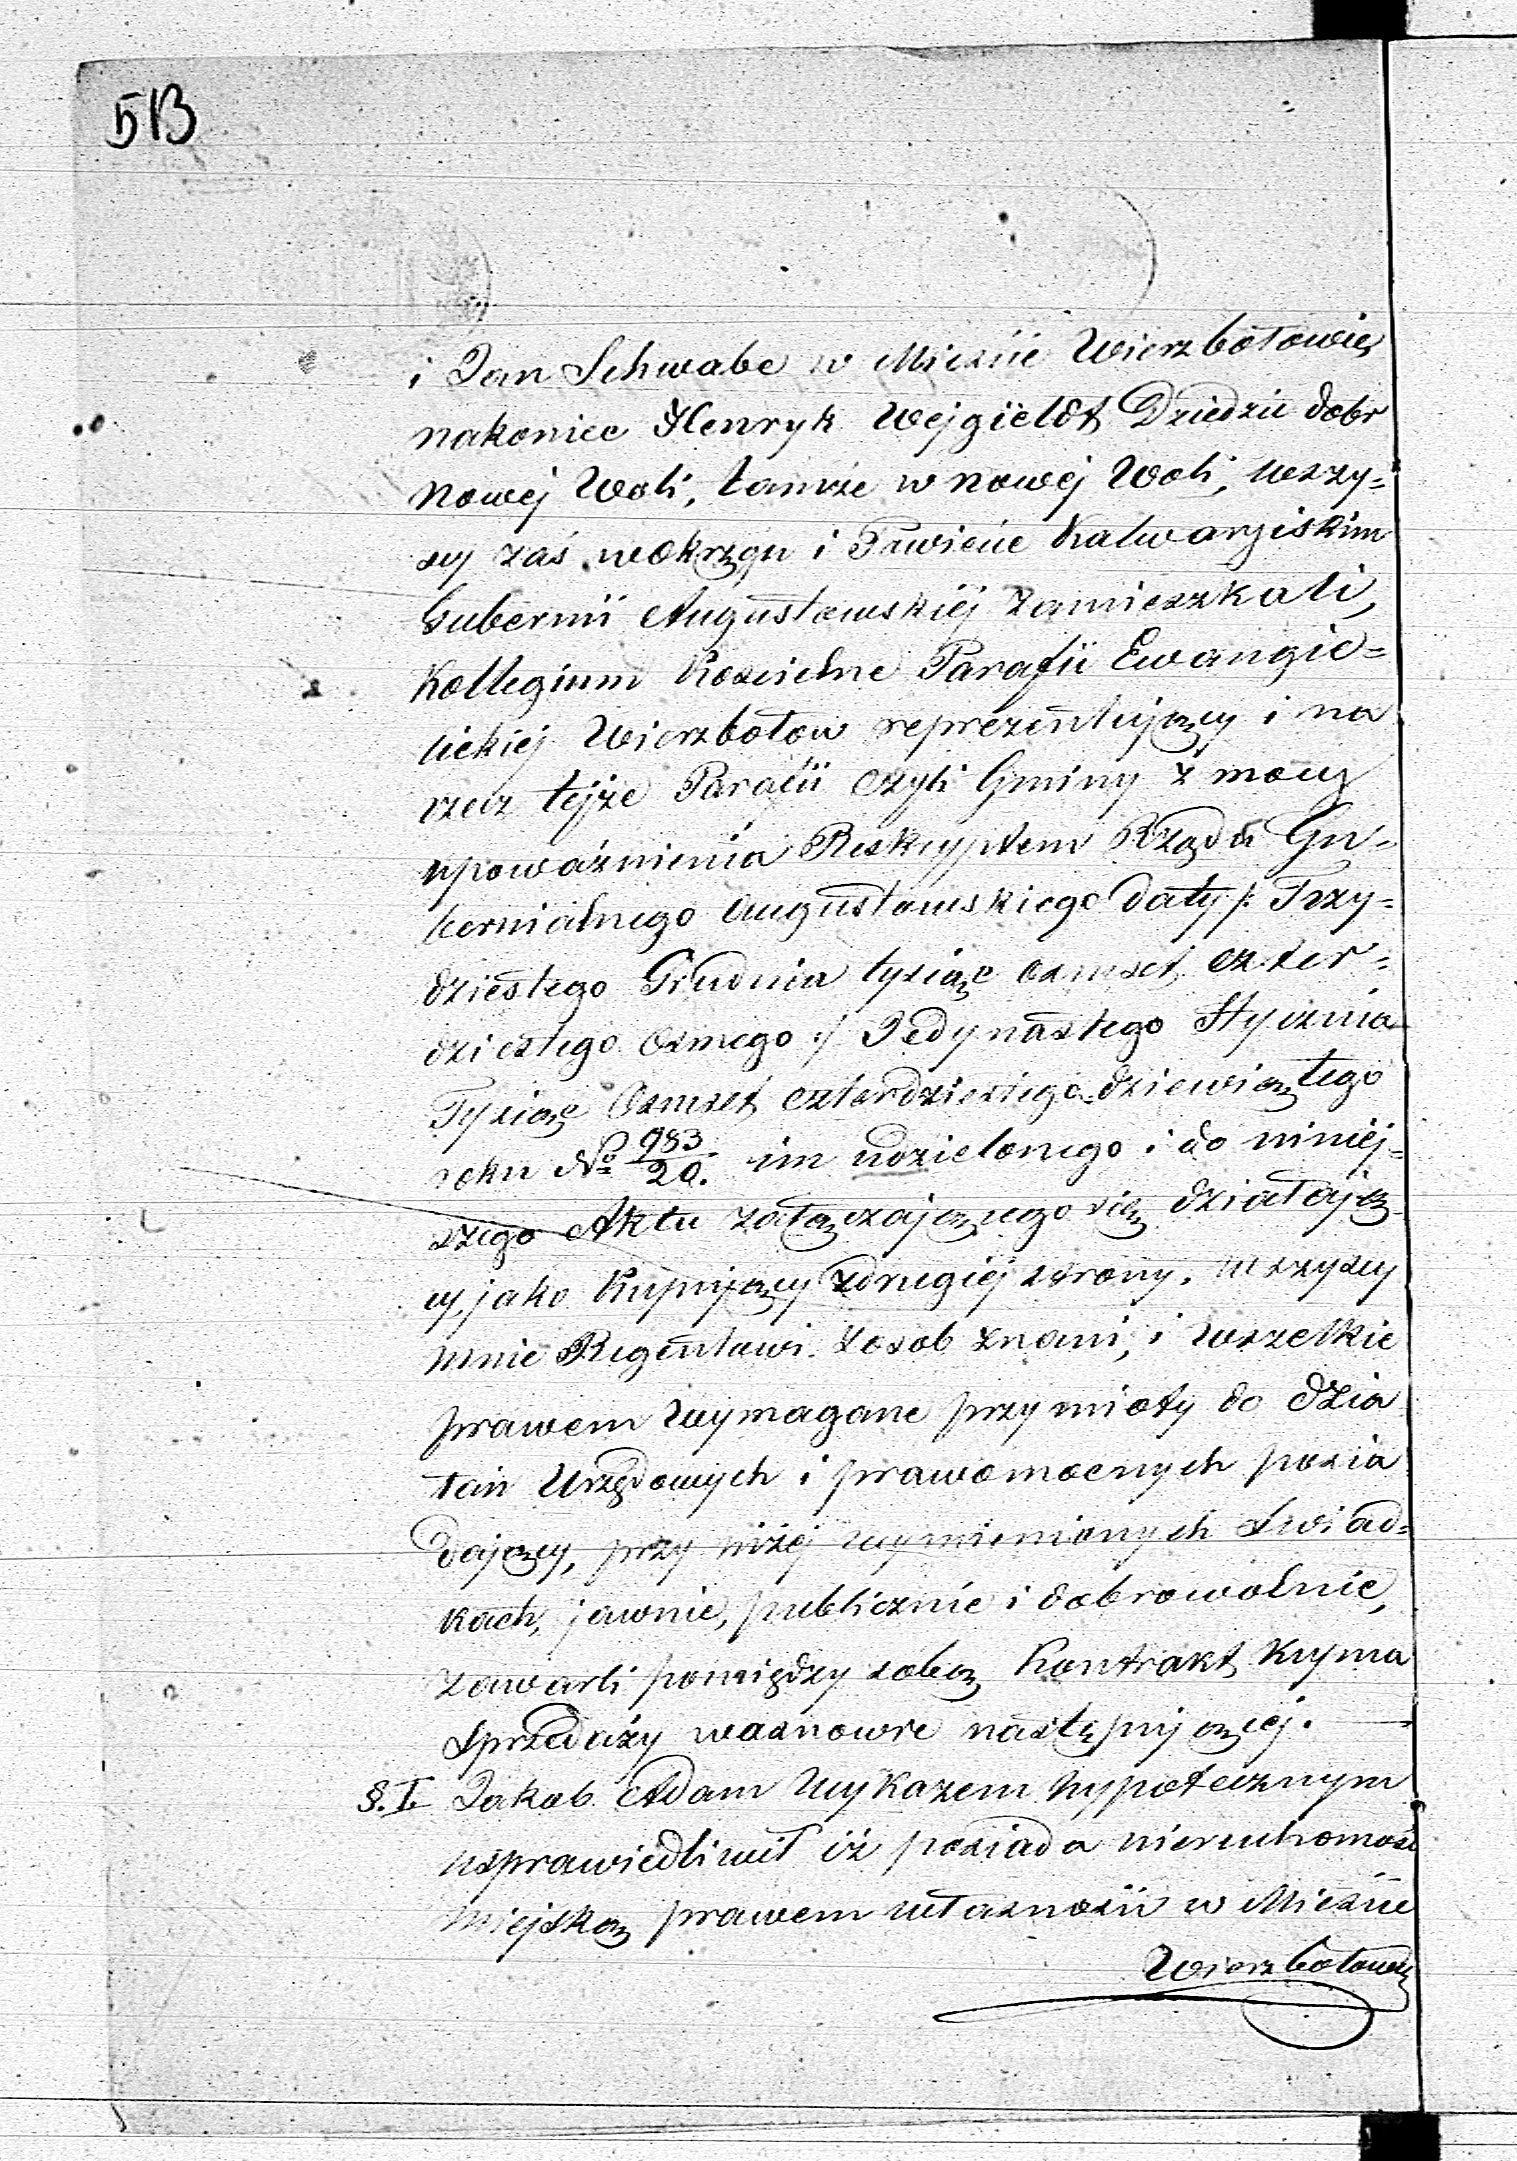 513
i Jan Schwabe w Mieście Wierzbołowie,
nakoniec Henryk Wejgieldt Dziedzic dobr
Nowej Woli, tamże w nowej Woli, wszy=
scy zaś w okręgu i Powiecie Kalwaryiskim
Gubernii Augustowskiej zamieszkali,
Kollegium Kościelne Parafii Ewangie=
lickiej Wierzbołow reprezentujący i na
rzecz tejże Parafii czyli Gminy z mocy
upoważnienia Reskryptem Rządu Gu=
bernialnego Augustowskiego daty /: Trzy=
dziestego Grudnia tysiąc ośmset czter=
dziestego osmego :/ Jedynastego Stycznia
Tysiąc Osmset czterdziestego dziewiątego
roku No 983/20. im udzielonego i do niniej=
szego Aktu załączającego się działają=
cy, jako Kupujący z drugiej strony. wszyscy
mnie Regentowi z osob znani, i wszelkie
prawem wymagane przymioty do dzia
łań Urzędowych i prawomocnych posia
dający, przy niżej wymienionych Swiad=
kach, jawnie, publicznie i dobrowolnie,
zawarli pomiędzy sobą Kontrakt Kupna
Sprzedaży w osnowie następującej.
§. I. Jakob Adam wykazem hypotecznym
usprawiedliwił iż posiada nieruchomość
miejską prawem własności w Mieście
Wierzbołowie